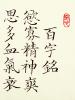 百字銘
慾寡精神爽
思多血氣衰